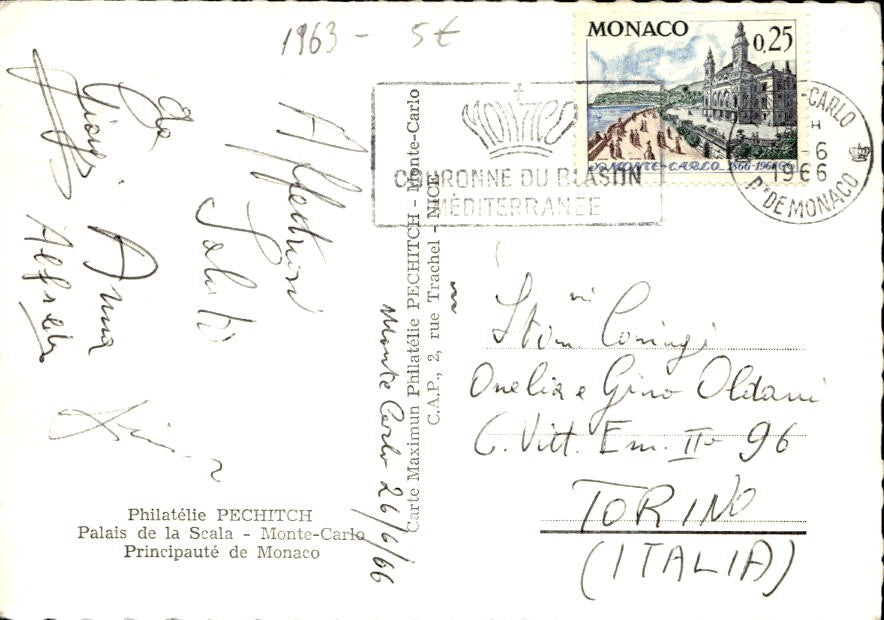 1963 - 5€
MONACO
0,25
MONTE-CARLO 1866-1966
MONACO
COURONNE DU BLASON
MÉDITERRANEE
-CARLO
H
-6
1966
PTE DE MONACO
Affettuosi
Saluti
da
Anna
Alfredo
Monte Carlo 26/6/66
Carte Maximun Philatélie PECHITCH - Monte-Carlo
C.A.P., 2, rue Trachel - NICE
Stim.mi Coniugi
Onelia e Gino Oldani
C. Vitt. Em. IIº 96
TORINO
(ITALIA)
Philatélie PECHITCH
Palais de la Scala - Monte-Carlo
Principauté de Monaco